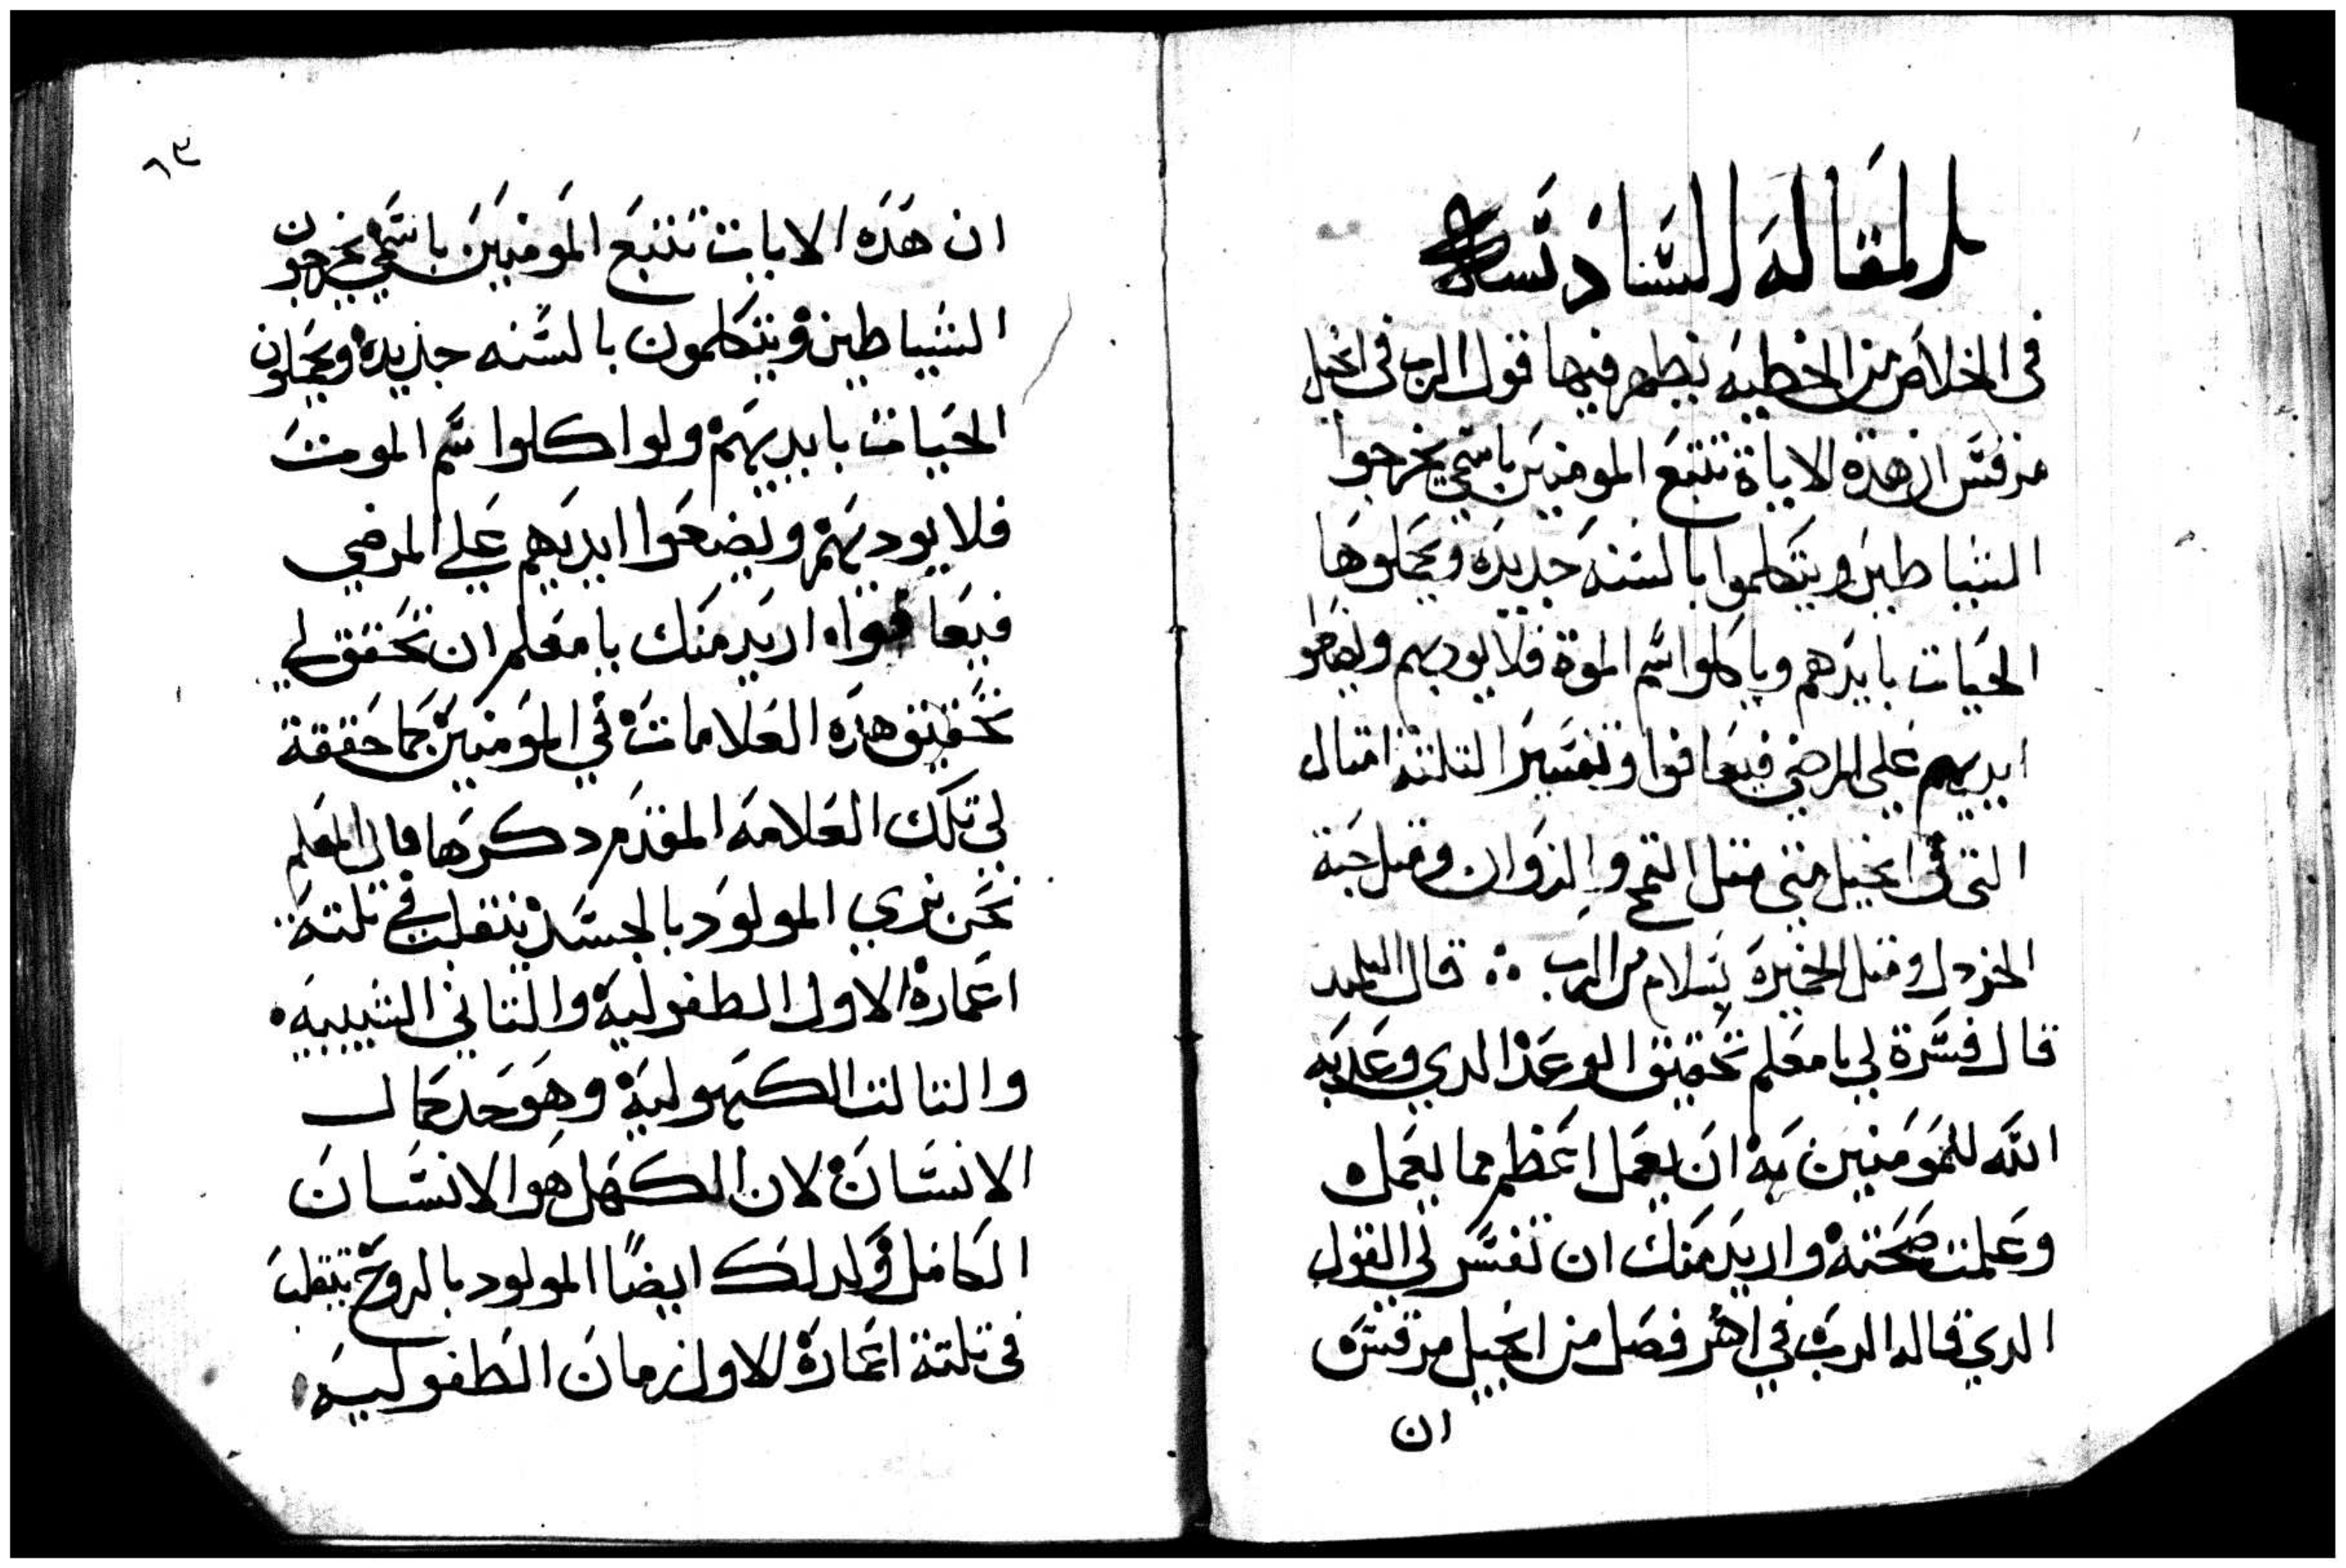 المقاله السادسه
في الخلاص من الخطيه نظهر فيها قول الرب في انجيل
مرقس ان هذه الاياة تتبع المومنين باسمي يخرجوا
الشياطين ويتكلموا بالسنه جديده ويحملوها
الحيات بايدهم وياكلوا سم الموة فلا يوديهم ويضعو
ايديهم على المرضي فيعافوا وتفسير التلتة امتال
التى فى انجيل متي متل القمح والزوان ومتل حبة
الخردل ومتل الخميرة بسلام من الرب ؞ قال التلميد
قال فسرة لي يا معلم تحقيق الوعد الدي وعد به
الله للمومنين به ان يعمل اعظم مما يعمل
وعلمت صحته واريد منك ان تفسر لي القول
الدي قاله الرب في اخر فصل من انجيل مرقس
ان
٦٣
ان هده الايات تتبع المومنين باسمي يخرجون
الشياطين ويتكلمون بالسنه جديده ويحملون
الحيات بايديهم ولو اكلوا سم الموت
فلا يوديهم ويضعوا ايديهم علي المرضي
فيعافوا اريد منك يا معلم ان تحقق لي
تحقيق هده العلامات في المومنين كما حققة
لي تلك العلامه المقدم دكرها قال المعلم
نحن نري المولود بالجسد ينتقلب في تلتة
اعمارة الاول الطفوليه والتاني الشبيبيه
والتالت الكهوليه وهو حد كمال
الانسان لان الكهل هو الانسان
الكامل ولدلك ايضًا المولود بالروح يتقلب
في تلتة اعمارة الاول زمان الطفوليه